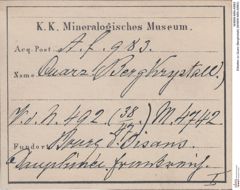 K. K. Mineralogisches Museum.
Acq. Post. A. f. 983.
Name: Quarz (Bergkrystall)
V. d. N. 492 (38/17) M. 4742
Fundort: Bourg d'Oisans.
Dauphinée, Frankreich.
I